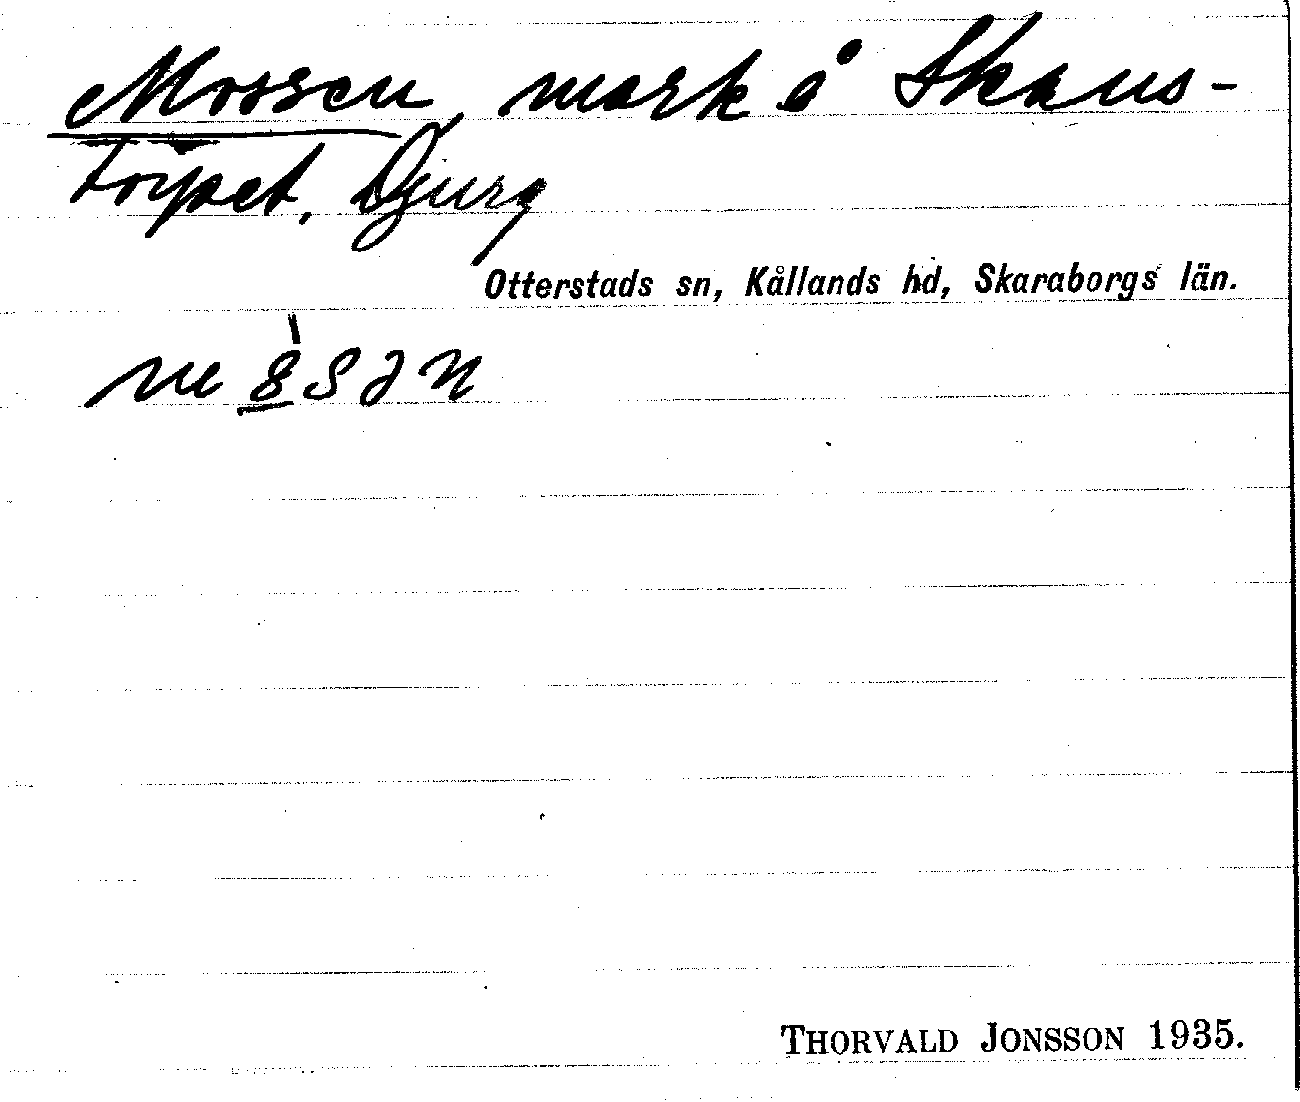 Mossen, mark å Skans-
torpet, Djurg
Otterstads sn, Kållands hd, Skaraborgs län.
THORVALD JONSSON 1935.